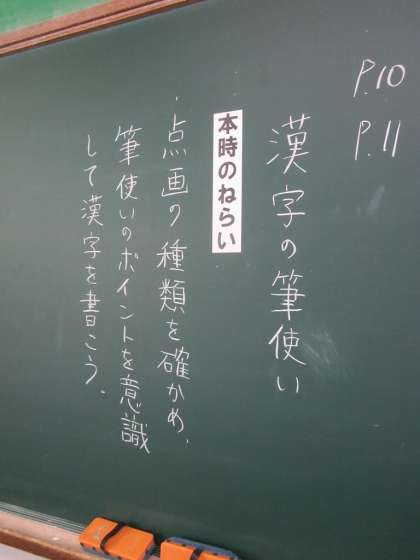 P.10
P.11
漢字の筆使い
本時のねらい
・点画の種類を確かめ、
筆使いのポイントを意識
して漢字を書こう。